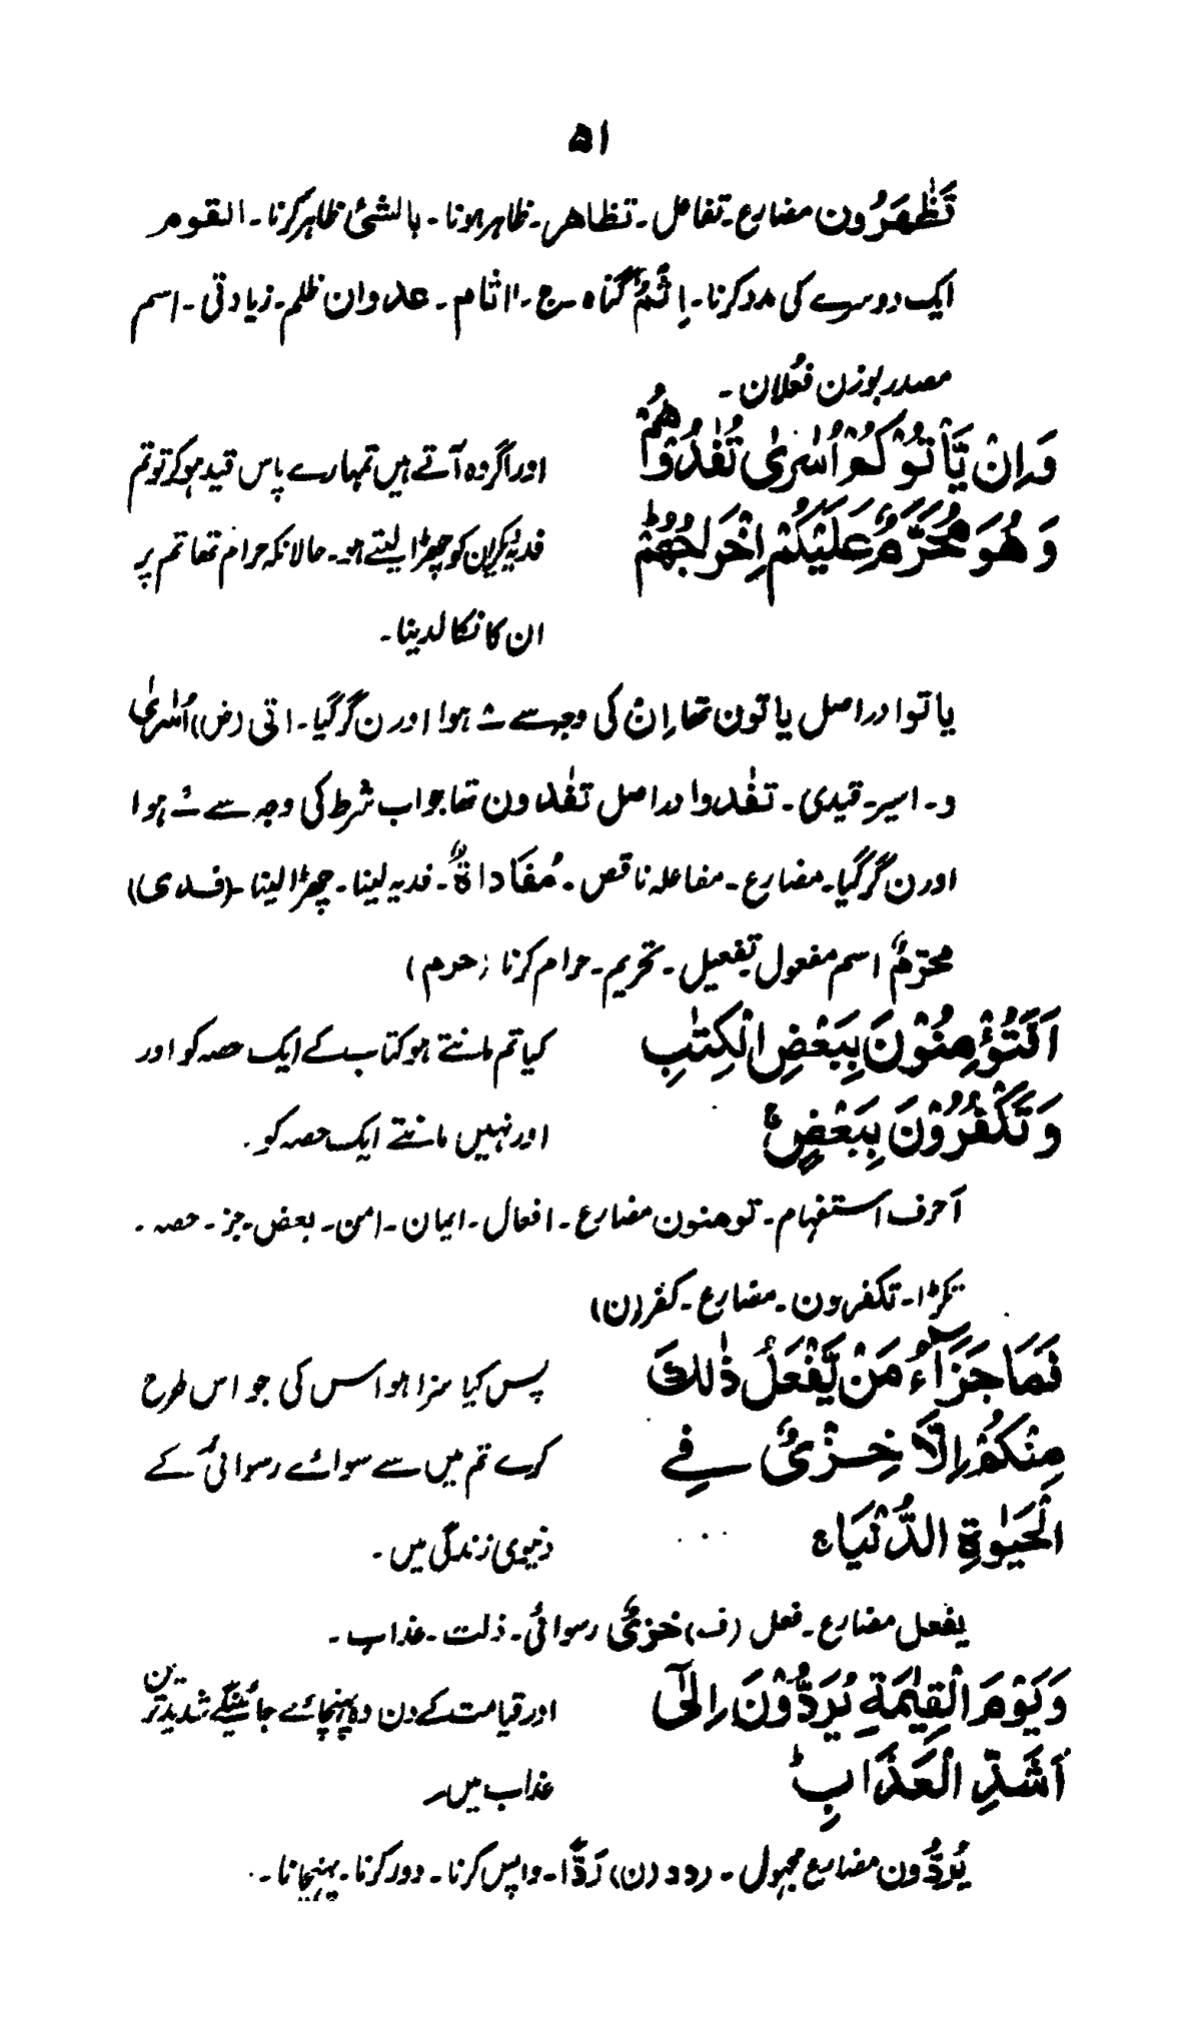 ۵۱
تَظٰهَرُون مضارع۔ تفاعل۔ تظاهر۔ ظاہر ہونا۔ بالشئ ظاہر کرنا۔ القوم
ایک دوسرے کی مدد کرنا۔ اِثْمٌ گناہ۔ ج۔ اٰثام۔ عدوان ظلم۔ زیادتی۔ اسم
مصدر بوزن فعُلان۔
وَاِنْ يَّأْتُوْكُمْ اُسٰرٰى تُفٰدُوْهُمْ
اور اگر وہ آتے ہیں تمہارے پاس قید ہوکر تو تم
وَهُوَ مُحَرَّمٌ عَلَيْكُمْ اِخْرَاجُهُمْ ؕ
فدیہ لیکر ان کو چھڑا لیتے ہو۔ حالانکہ حرام تھا تم پر
ان کا نکالدینا۔
یاتوا دراصل یاتون تھا اِنْ کی وجہ سے ے ہوا اور ن گر گیا۔ اتی (ض) اُسٰرٰی
و۔ اسیر۔ قیدی۔ تفٰدوا دراصل تفٰدون تھا جواب شرط کی وجہ سے ے ہوا
اور ن گر گیا۔ مضارع۔ مفاعلہ ناقص۔ مُفَاداةٌ۔ فدیہ لینا۔ چھڑا لینا۔ (فدی)
محرّمٌ اسم مفعول تفعیل۔ تحریم۔ حرام کرنا (حرم)
اَفَتُؤْمِنُوْنَ بِبَعْضِ الْكِتٰبِ
کیا تم مانتے ہو کتاب کے ایک حصہ کو اور
وَتَكْفُرُوْنَ بِبَعْضٍ ۚ
اور نہیں مانتے ایک حصہ کو۔
أ حرف استفہام۔ تومنون مضارع۔ افعال۔ ایمان۔ امن۔ بعض۔ جز۔ حصہ۔
ٹکڑا۔ تکفرون۔ مضارع۔ کفر (ن)
فَمَا جَزَآءُ مَنْ يَّفْعَلُ ذٰلِكَ
پس کیا سزا ہو اس کی جو اس طرح
مِنْكُمْ اِلَّا خِزْيٌ فِي
کرے تم میں سے سوائے رسوائی کے
الْحَيٰوةِ الدُّنْيَا ۚ
دنیوی زندگی میں۔
یفعل مضارع۔ فعل (ف) خزیٌ رسوائی۔ ذلت۔ عذاب۔
وَيَوْمَ الْقِيٰمَةِ يُرَدُّوْنَ اِلٰٓى
اور قیامت کے دن وہ پہنچائے جائینگے شدید ترین
اَشَدِّ الْعَذَابِ ؕ
عذاب میں۔
یُرَدُّون مضارع مجہول۔ ردد (ن) رَدًّا۔ واپس کرنا۔ دور کرنا۔ پہنچانا۔